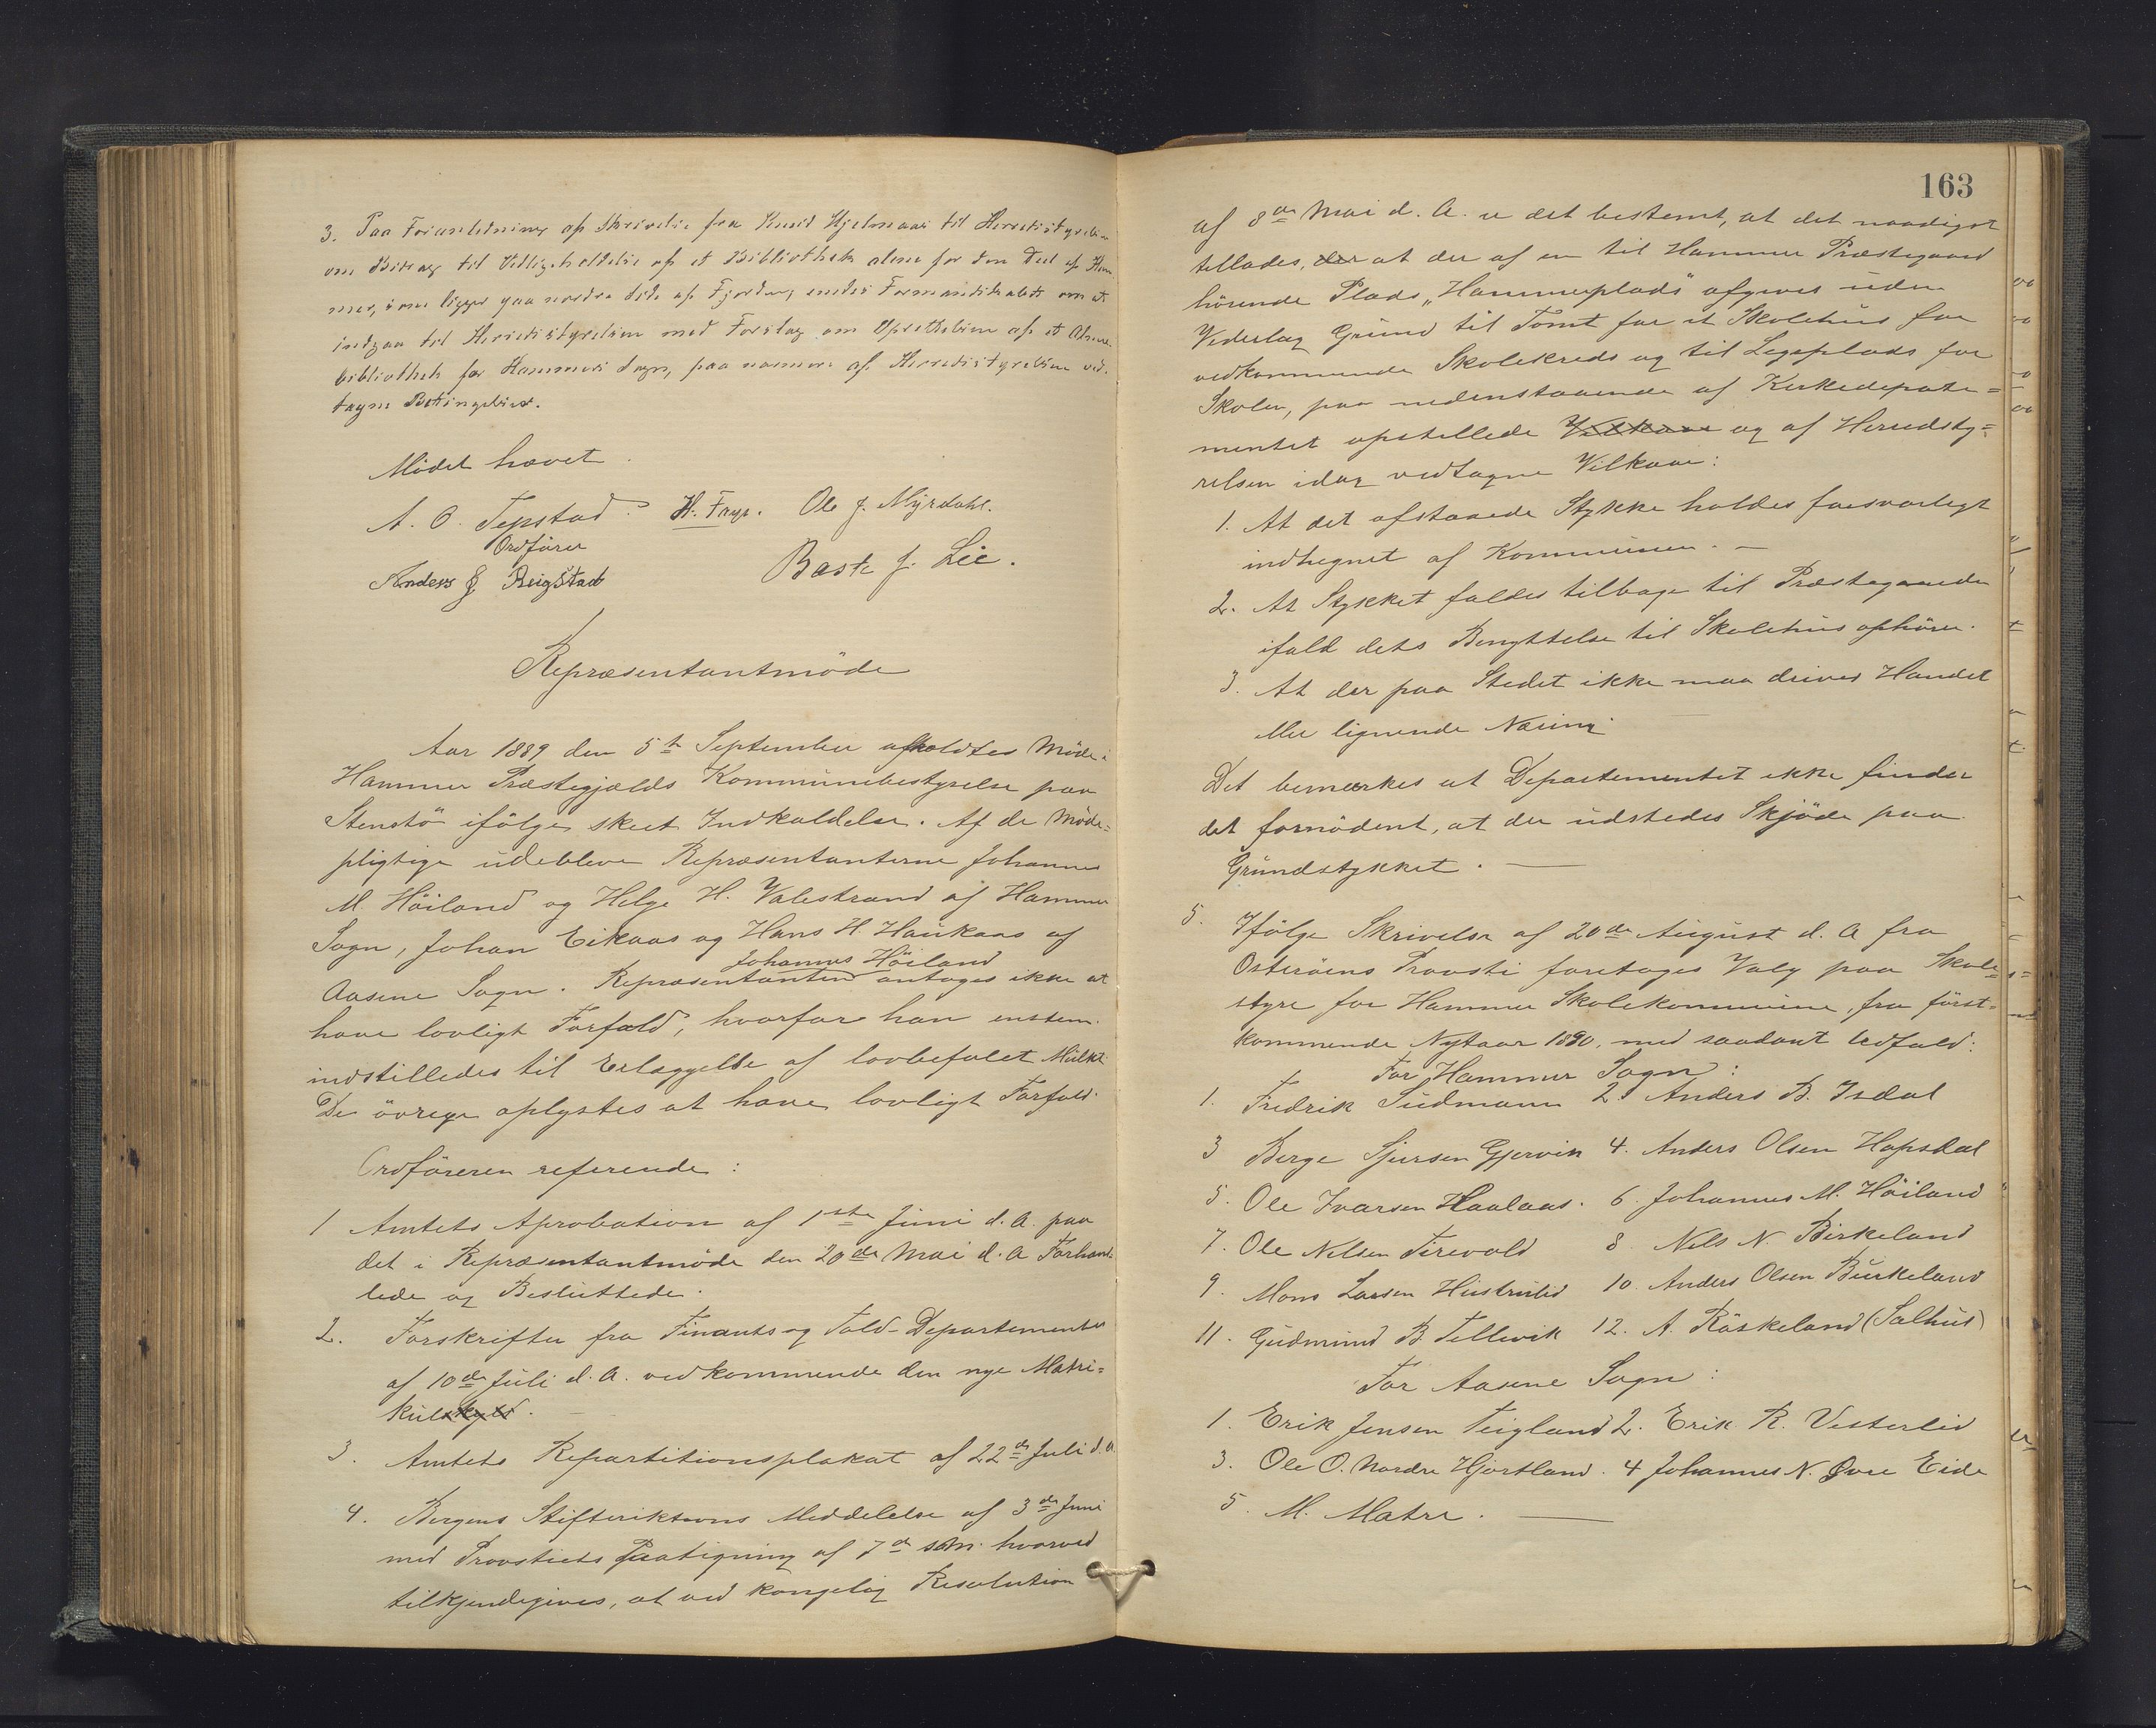 3. Paa Foranledning af Skrivelse fra Knud Hjelmaas til Herredsstyrelsen
om Bidrag til Vedligeholdelse af et Bibliothek alene for den Deel af Ham
mer, som ligger paa nordre Side af Fjorden, enedes Formandskabet om at
indgaa til Herredsstyrelsen med Forslag om Oprettelsen af et Almue
bibliothek for Hammers Sogn, paa nærmere af Herredsstyrelsen ved-
tagne Betingelser.
Mödet hævet.
A. O. Tepstad H. Frye. Ole J. Myrdahl.
Ordförer
Anders J Reigstad Baste J. Lie.
Repræsentantmöde
Aar 1889 den 5te September afholdtes Möde i
Hammer Præstegjælds Kommunebestyrelse paa
Stenstö ifölge skeet Indkaldelse. Af de Möde-
pligtige udebleve Repræsentanterne Johannes
M. Höiland og Helge H. Valestrand af Hammer
Sogn, Johan Eikaas og Hans H. Haukaas af
Johannes Höiland
Aasene Sogn. Repræsentanten antages ikke at
have lovligt Forfald, hvorfor han enstem.
indstilledes til Erlæggelse af lovbefalet Mulkt.
De övrige oplystes at have lovligt Forfald.
Ordföreren refererede:
1 Amtets Aprobation af 1ste Juni d. A. paa
det i Repræsentantmöde den 20de Mai d. A Forhand-
lede og Besluttede.
2. Forskrifter fra Finants og Told-Departementet
af 10de Juli d. A. vedkommende den nye Matri-
kulskyld.
3. Amtets Repartitionsplakat af 22de Juli d. A
4. Bergens Stiftsriktions Meddelelse af 3de Juni
med Provstiets Paategning af 7de s.M. hvorved
tilkjendegives, at ved kongelig Resolution
163
af 8de Mai d. A. er det bestemt, at det naadigst
tillades, der at der af en til Hammer Præstegaard
hörende Plads „Hammerplads" afgives uden
Vederlag Grund til Tomt for et Skolehus for
vedkommende Skolekreds og til Legeplads for
Skolen, paa nedenstaaende af Kirkedeparte-
mentet opstillede Vilkaar og af Herredsty-
relsen idag vedtagne Vilkaar:
1. At det afstaaede Stykke holdes forsvarligt
indhegnet af Kommunen. —
2. At Stykket falder tilbage til Præstegaarden
ifald dets Benyttelse til Skolehus ophörer.
3. At der paa Stedet ikke maa drives Handel
eller lignende Næring
Det bemærkes at Departementet ikke finder
det fornödent, at der udstedes Skjöde paa
Grundstykket. —
5. Ifölge Skrivelse af 20de August d. A fra
Osteröens Provsti foretages Valg paa Skole-
styre for Hammer Skolekommune, fra först-
kommende Nytaar 1890, med saadant Udfald:
For Hammer Sogn:
1. Fredrik Sudmann 2. Anders B. Isdal
3 Berge Sjursen Gjervik 4. Anders Olsen Hopsdal
5. Ole Ivarsen Haalaas. 6. Johannes M. Höiland
7. Ole Nilsen Tirevold 8. Nils N Birkeland
9. Mons Larsen Hustrulid 10. Anders Olsen Burkeland
11. Gudmund B. Tellevik 12. A. Röskeland (Salhus)
For Aasene Sogn:
1. Erik Jensen Teigland 2. Erik R. Vesterlid
3. Ole O. Nordre Hjortland. 4 Johannes N. Övre Eide
5. M. Matre. —